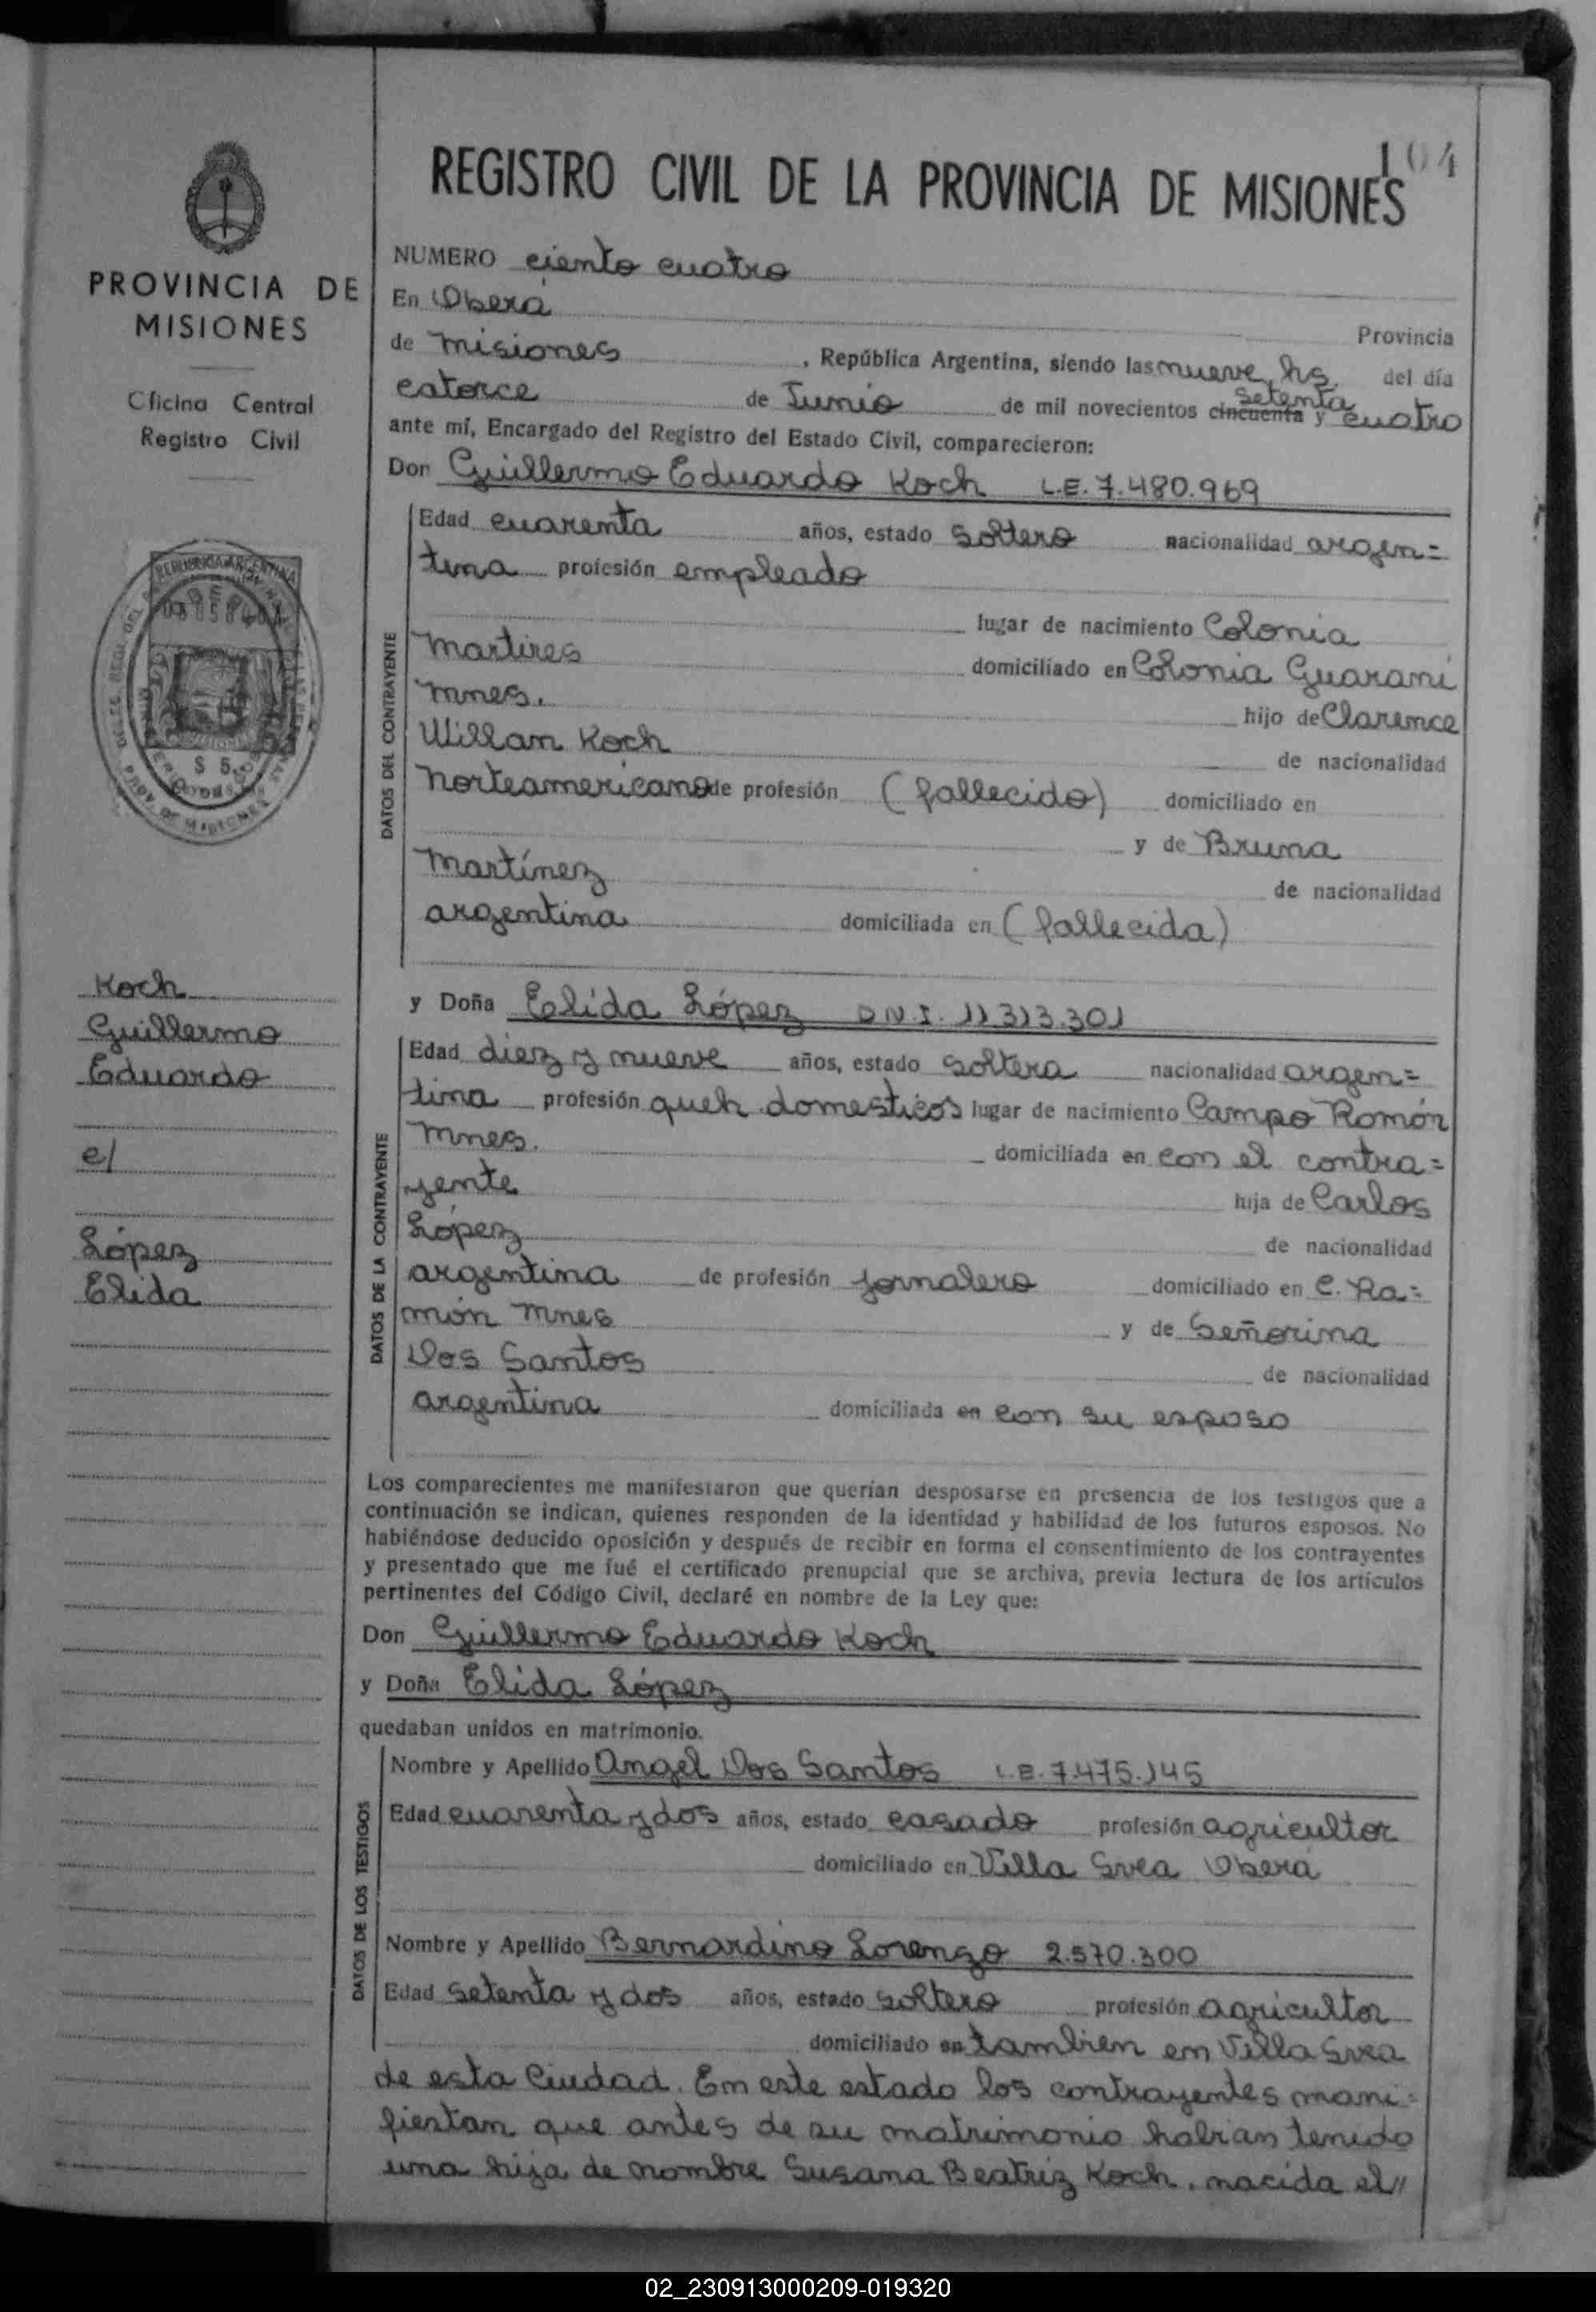 104
REGISTRO CIVIL DE LA PROVINCIA DE MISIONES
PROVINCIA DE
MISIONES
Oficina Central
Registro Civil
REPUBLICA ARGENTINA
$ 5.
PROV. DE MISIONES
Koch
Guillermo
Eduardo
c/
López
Elida
NUMERO ciento cuatro
En Oberá
Provincia
de Misiones, República Argentina, siendo las nueve hs. del día
catorce de Junio de mil novecientos cincuenta setenta y cuatro
ante mí, Encargado del Registro del Estado Civil, comparecieron:
Don Guillermo Eduardo Koch L.E. 7.480.969
DATOS DEL CONTRAYENTE
Edad cuarenta años, estado soltero nacionalidad argen=
tina profesión empleado
lugar de nacimiento Colonia
Martires domiciliado en Colonia Guarani
Mnes. hijo de Clarence
Willan Koch de nacionalidad
norteamericano de profesión (fallecido) domiciliado en
y de Bruna
Martínez de nacionalidad
argentina domiciliada en (fallecida)
y Doña Elida López D.N.I. 11.313.301
DATOS DE LA CONTRAYENTE
Edad diez y nueve años, estado soltera nacionalidad argen=
tina profesión queh. domesticos lugar de nacimiento Campo Ramón
Mnes. domiciliada en con el contra=
yente hija de Carlos
López de nacionalidad
argentina de profesión jornalero domiciliado en C. Ra=
món Mnes y de Señorina
Dos Santos de nacionalidad
argentina domiciliada en con su esposo
Los comparecientes me manifestaron que querían desposarse en presencia de los testigos que a
continuación se indican, quienes responden de la identidad y habilidad de los futuros esposos. No
habiéndose deducido oposición y después de recibir en forma el consentimiento de los contrayentes
y presentado que me fué el certificado prenupcial que se archiva, previa lectura de los artículos
pertinentes del Código Civil, declaré en nombre de la Ley que:
Don Guillermo Eduardo Koch
y Doña Elida López
quedaban unidos en matrimonio.
DATOS DE LOS TESTIGOS
Nombre y Apellido Angel Dos Santos L.E. 7.475.145
Edad cuarenta y dos años, estado casado profesión agricultor
domiciliado en Villa Svea Oberá
Nombre y Apellido Bernardino Lorenzo 2.570.300
Edad setenta y dos años, estado soltero profesión agricultor
domiciliado en tambien en Villa Svea
de esta Ciudad. En este estado los contrayentes mani=
fiestan que antes de su matrimonio habian tenido
una hija de nombre Susana Beatriz Koch, nacida el//
02_230913000209-019320